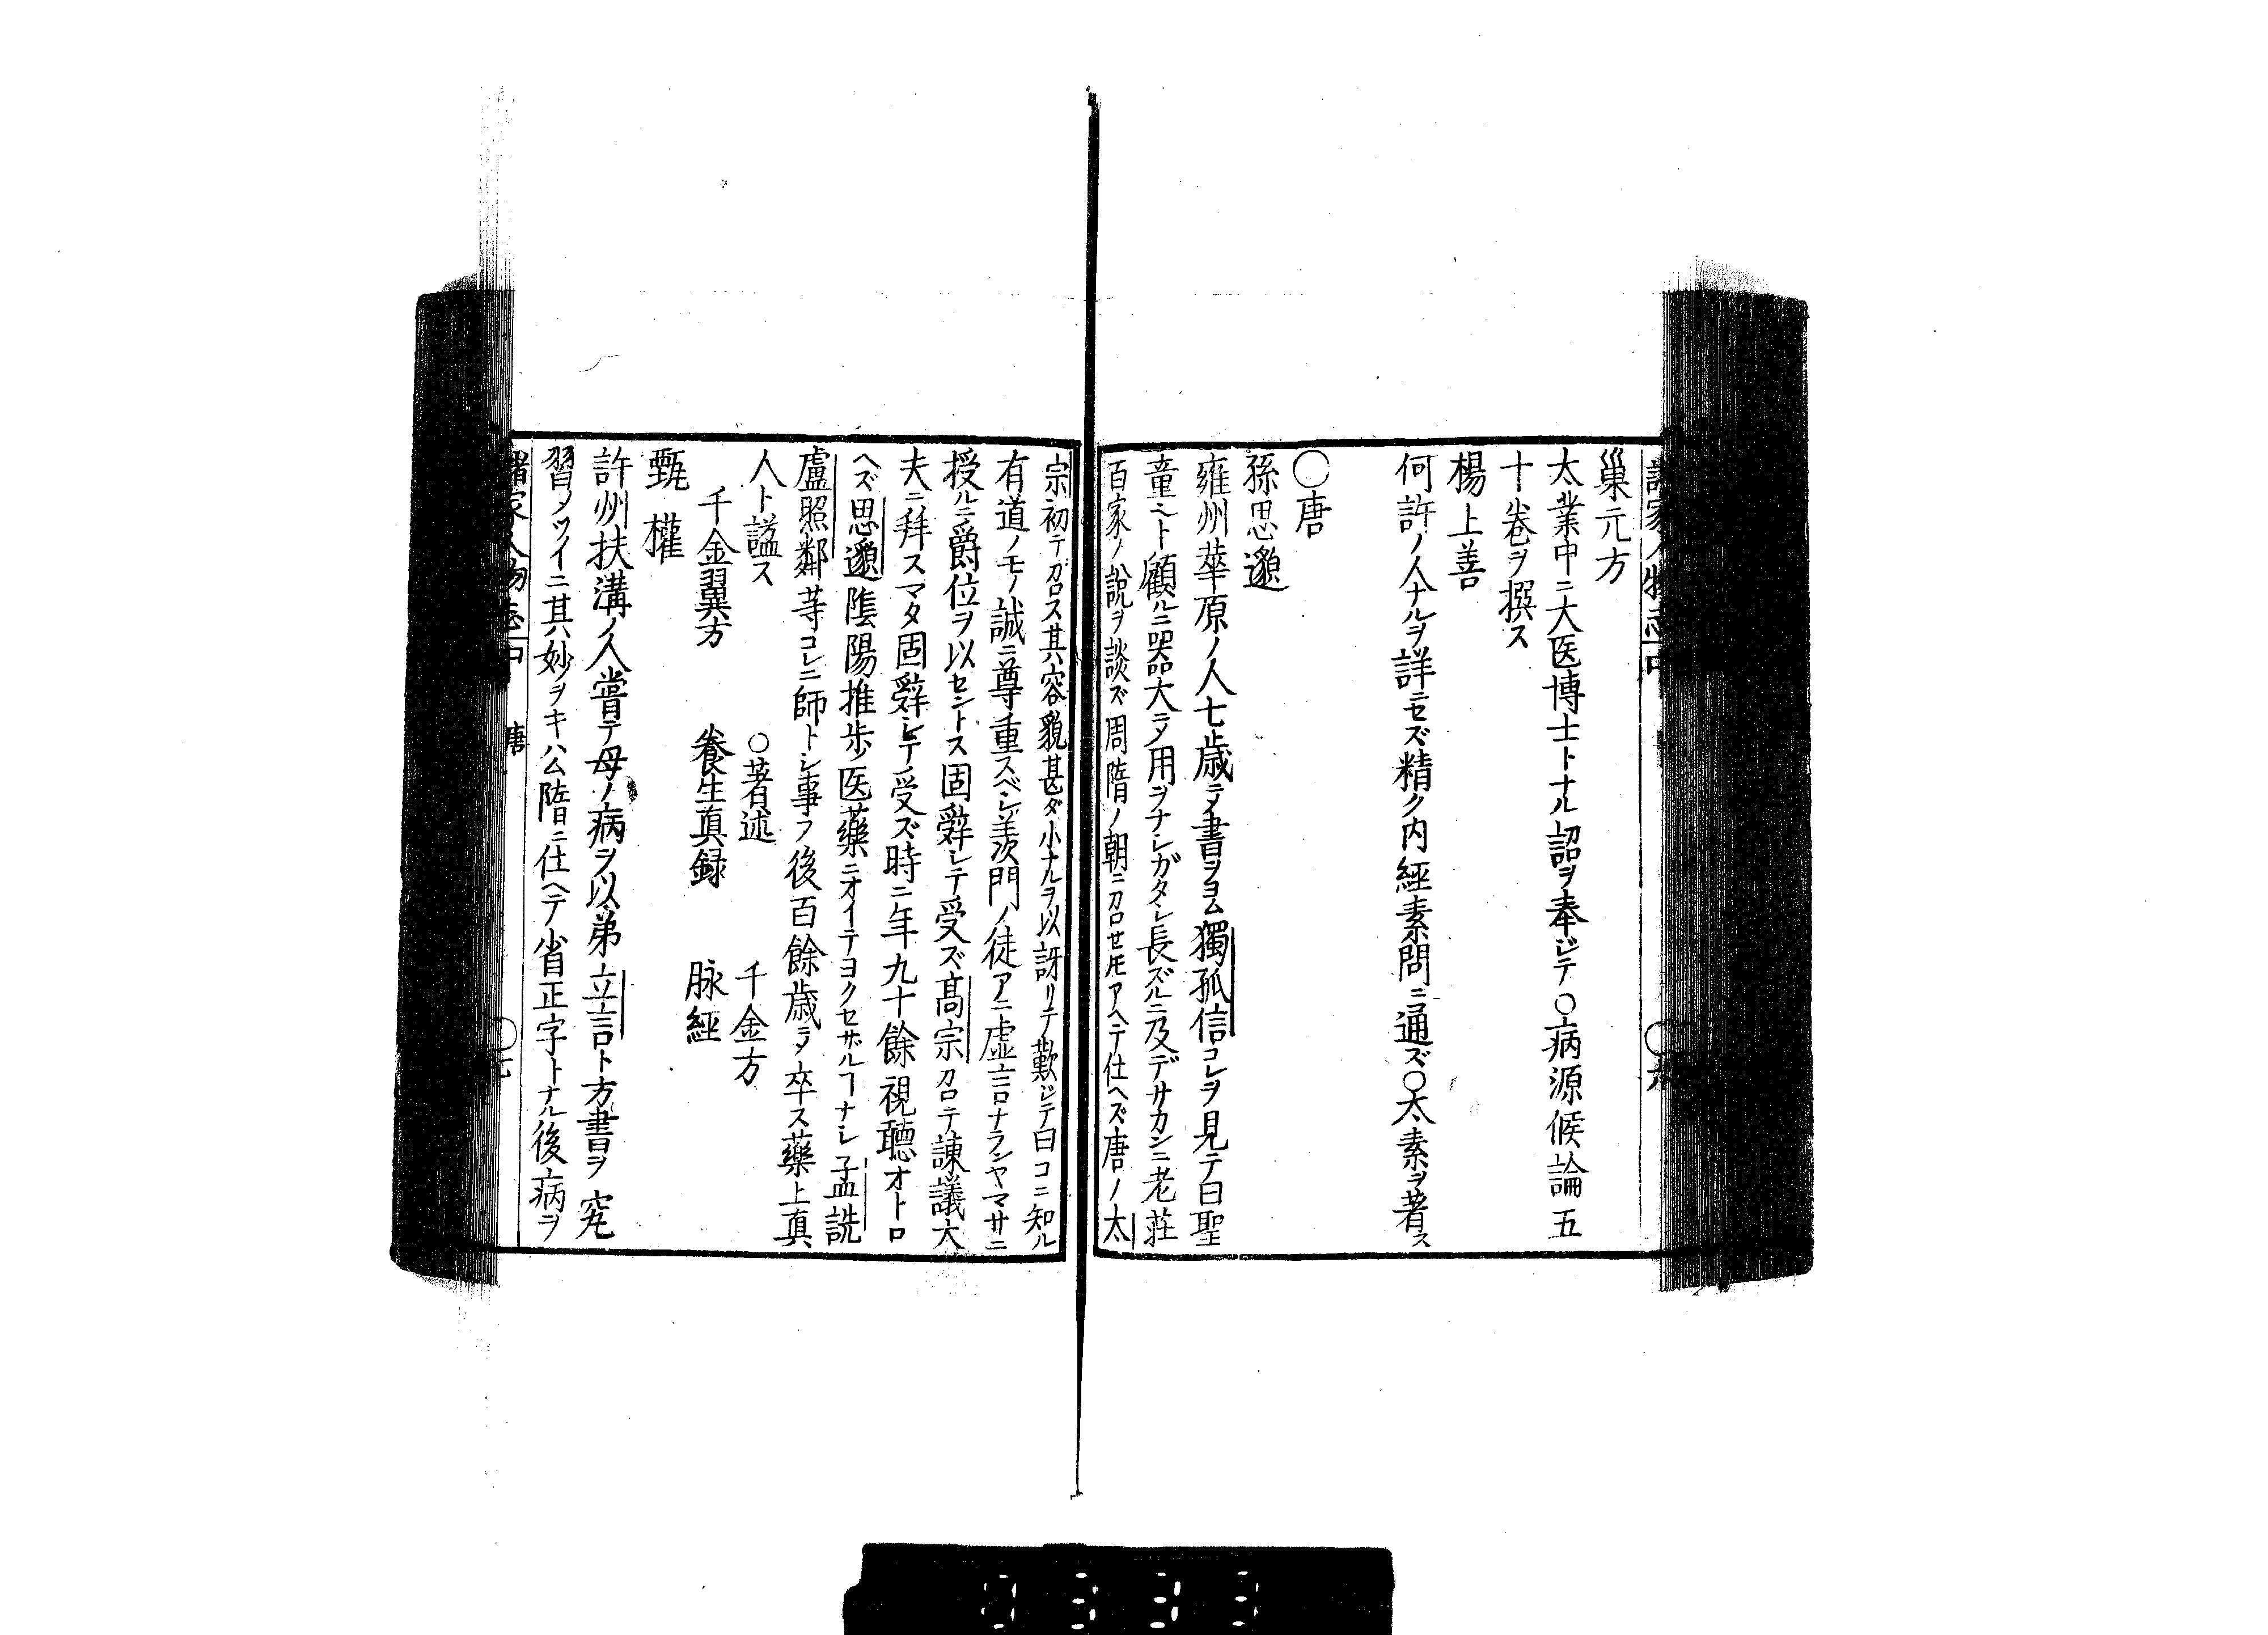 巢元方
太業中ニ大医博士トナル詔ヲ奉ジテ○病源候論五
十巻ヲ撰ス
楊上善
何許ノ人ナルヲ詳ニセズ精ク内經素問ニ通ズ○太素ヲ著ス
○唐
孫思邈
雍州華原ノ人七歳ニメ書ヲヨム獨孤信コレヲ見テ曰聖
童ニト顧ルニ器大ニメ用ヲナシガタシ長ズルニ及デサカンニ老荘
百家ノ説ヲ談ズ周隋ノ朝ニ召セ𪜈アヘテ仕ヘズ唐ノ太
宗初テ召ス其容貌甚ダ小ナルヲ以訝リテ歎ジテ曰コニ知ル
有道ノモノ誠ニ尊重スベシ羨門ノ徒アニ虚言ナランヤマサニ
授ルニ爵位ヲ以セントス固辤シテ受ズ髙宗召テ諌議大
夫ニ拜スマタ固辤シテ受ズ時ニ年九十餘視聴オトロ
ヘズ思邈陰陽推歩医藥ニオイテヨクセザルヿナシ孟詵
盧照鄰等コレニ師トシ事フ後百餘歳ニメ卒ス藥上真
人ト謚ス　○著述　千金方
千金翼方　養生真録　脉經
甄權
許州扶溝ノ人嘗テ母ノ病ヲ以弟立言ト方書ヲ究
習ノツイニ其妙ヲキハム隋ニ仕ヘテ省正字トナル後病ヲ
諸家人物志　中　唐